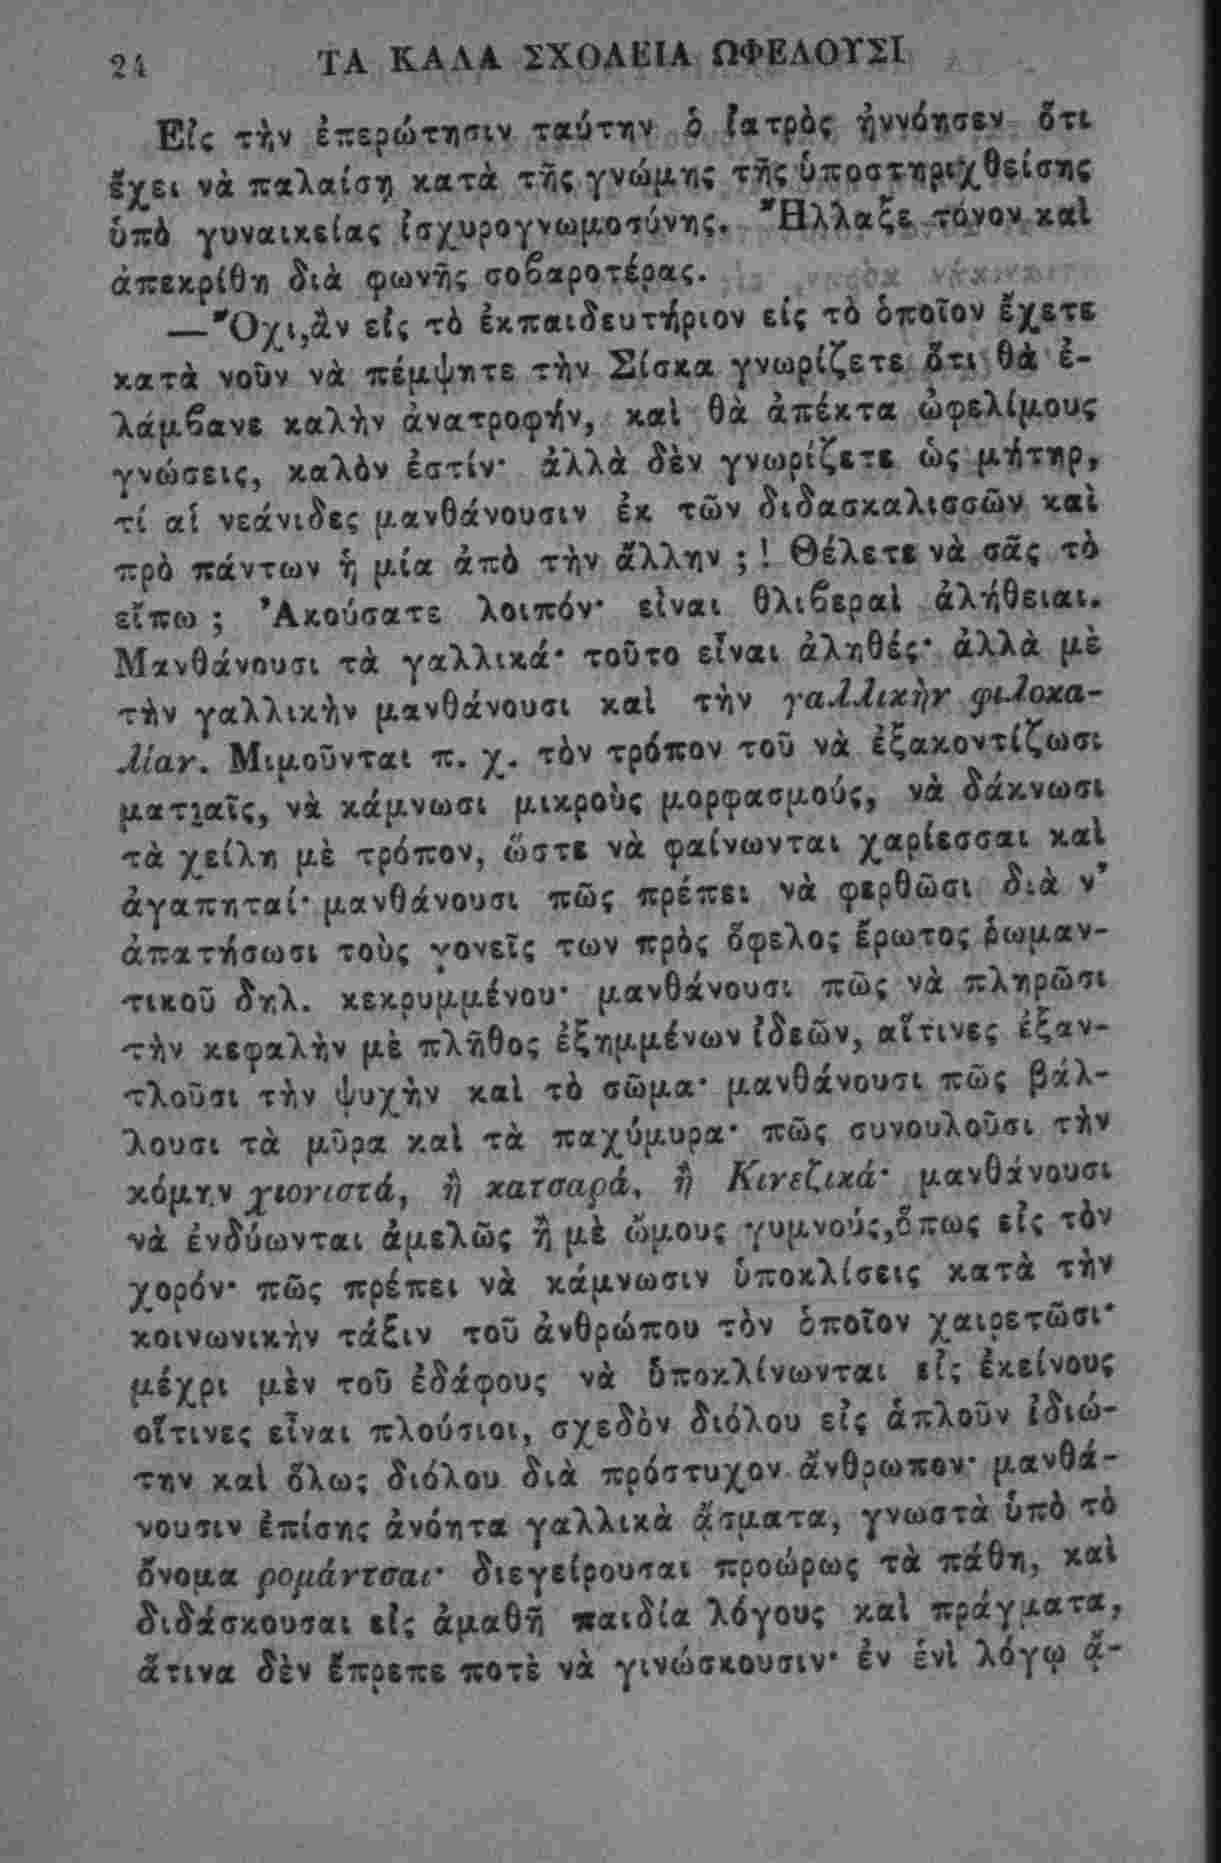 24 ΤΑ ΚΑΛΑ ΣΧΟΛΕΙΑ ΩΦΕΛΟΥΣΙ
Εἰς τὴν ἐπερώτησιν ταύτην ὁ ἰατρὸς ἠννόησεν ὅτι
ἔχει νὰ παλαίσῃ κατὰ τῆς γνώμης τῆς ὑποστηριχθείσης
ὑπὸ γυναικείας ἰσχυρογνωμοσύνης. Ἤλλαξε τόνον καὶ
ἀπεκρίθη διὰ φωνῆς σοβαροτέρας.
—Ὄχι, ἂν εἰς τὸ ἐκπαιδευτήριον εἰς τὸ ὁποῖον ἔχετε
κατὰ νοῦν νὰ πέμψητε τὴν Σίσκα γνωρίζετε ὅτι θὰ ἐ-
λάμβανε καλὴν ἀνατροφήν, καὶ θὰ ἀπέκτα ὠφελίμους
γνώσεις, καλὸν ἐστίν· ἀλλὰ δὲν γνωρίζετε ὡς μήτηρ,
τί αἱ νεάνιδες μανθάνουσιν ἐκ τῶν διδασκαλισσῶν καὶ
πρὸ πάντων ἡ μία ἀπὸ τὴν ἄλλην ; ! Θέλετε νὰ σᾶς τὸ
εἴπω ; Ἀκούσατε λοιπόν· εἶναι θλιβεραὶ ἀλήθειαι.
Μανθάνουσι τὰ γαλλικά· τοῦτο εἶναι ἀληθές· ἀλλὰ μὲ
τὴν γαλλικὴν μανθάνουσι καὶ τὴν γαλλικὴν φιλοκα-
λίαν. Μιμοῦνται π. χ. τὸν τρόπον τοῦ νὰ ἐξακοντίζωσι
ματιαῖς, νὰ κάμνωσι μικροὺς μορφασμούς, νὰ δάκνωσι
τὰ χείλη μὲ τρόπον, ὥστε νὰ φαίνωνται χαρίεσσαι καὶ
ἀγαπηταί· μανθάνουσι πῶς πρέπει νὰ φερθῶσι διὰ ν'
ἀπατήσωσι τοὺς γονεῖς των πρὸς ὄφελος ἔρωτος ῥωμαν-
τικοῦ δηλ. κεκρυμμένου· μανθάνουσι πῶς νὰ πληρῶσι
τὴν κεφαλὴν μὲ πλῆθος ἐξημμένων ἰδεῶν, αἵτινες ἐξαν-
τλοῦσι τὴν ψυχὴν καὶ τὸ σῶμα· μανθάνουσι πῶς βάλ-
λουσι τὰ μῦρα καὶ τὰ παχύμυρα· πῶς συνουλοῦσι τὴν
κόμην χιονιστά, ἢ κατσαρά, ἢ Κινεζικά· μανθάνουσι
νὰ ἐνδύωνται ἀμελῶς ἢ μὲ ὤμους γυμνούς, ὅπως εἰς τὸν
χορόν· πῶς πρέπει νὰ κάμνωσιν ὑποκλίσεις κατὰ τὴν
κοινωνικὴν τάξιν τοῦ ἀνθρώπου τὸν ὁποῖον χαιρετῶσι·
μέχρι μὲν τοῦ ἐδάφους νὰ ὑποκλίνωνται εἰς ἐκείνους
οἵτινες εἶναι πλούσιοι, σχεδὸν διόλου εἰς ἁπλοῦν ἰδιώ-
την καὶ ὅλως διόλου διὰ πρόστυχον ἄνθρωπον· μανθά-
νουσιν ἐπίσης ἀνόητα γαλλικὰ ᾄσματα, γνωστὰ ὑπὸ τὸ
ὄνομα ρομάντσαι· διεγείρουσαι προώρως τὰ πάθη, καὶ
διδάσκουσαι εἰς ἀμαθῆ παιδία λόγους καὶ πράγματα,
ἅτινα δὲν ἔπρεπε ποτὲ νὰ γινώσκουσιν· ἐν ἑνὶ λόγῳ ᾄ-